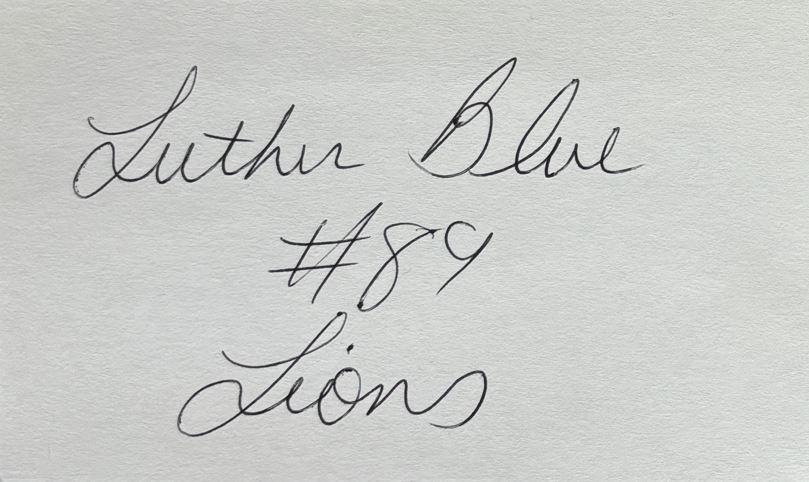 Luther Blue
#89
Lions